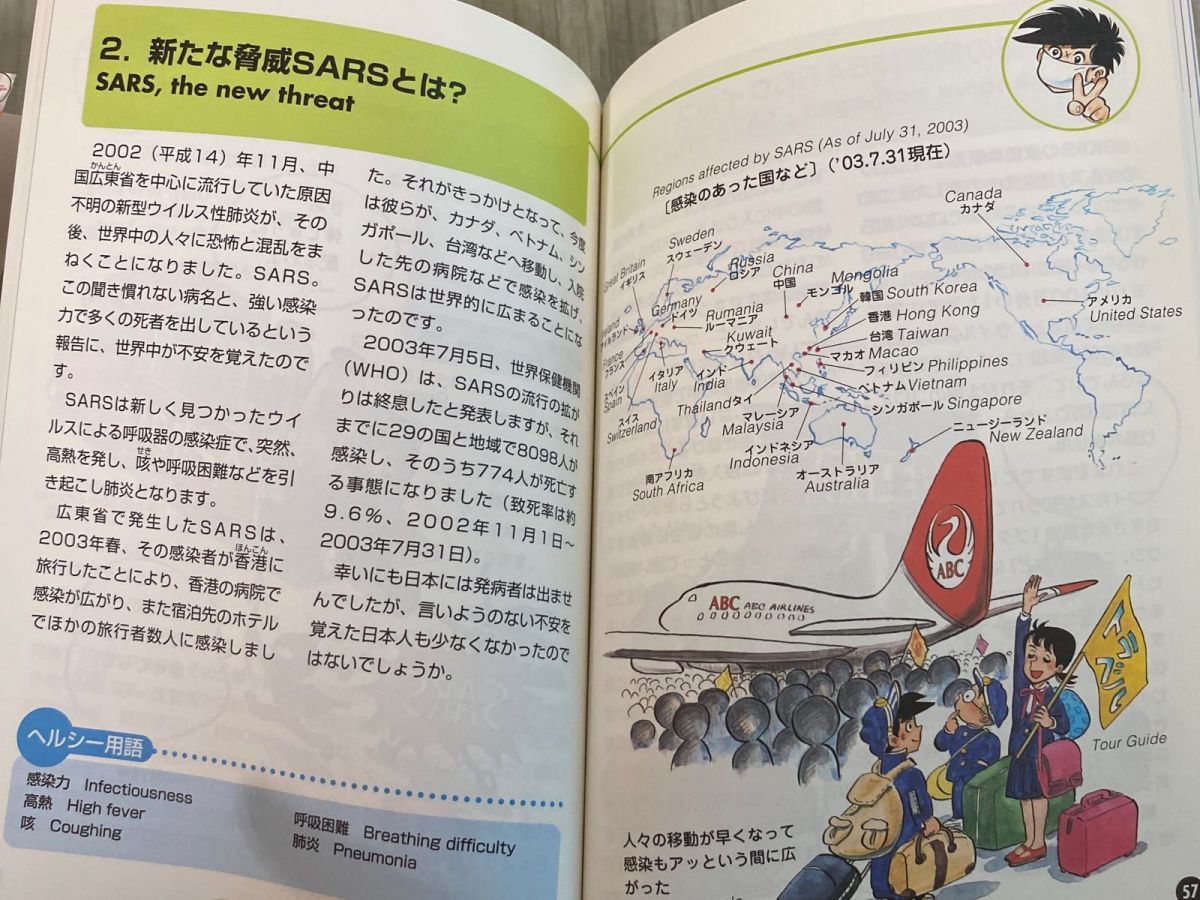 2. 新たな脅威SARSとは?
SARS, the new threat
2002（平成14）年11月、中
国広東省を中心に流行していた原因
かんとん
不明の新型ウイルス性肺炎が、その
後、世界中の人々に恐怖と混乱をま
ねくことになりました。SARS。
この聞き慣れない病名と、強い感染
力で多くの死者を出しているという
報告に、世界中が不安を覚えたので
す。
SARSは新しく見つかったウイ
ルスによる呼吸器の感染症で、突然、
高熱を発し、咳や呼吸困難などを引
せき
き起こし肺炎となります。
広東省で発生したSARSは、
2003年春、その感染者が香港に
ほんこん
旅行したことにより、香港の病院で
感染が広がり、また宿泊先のホテル
でほかの旅行者数人に感染しまし
た。それがきっかけとなって、今度
は彼らが、カナダ、ベトナム、シン
ガポール、台湾などへ移動し、入院
した先の病院などで感染を拡げ、
SARSは世界的に広まることにな
ったのです。
2003年7月5日、世界保健機関
(WHO) は、SARSの流行の拡が
りは終息したと発表しますが、それ
までに29の国と地域で8098人が
感染し、そのうち774人が死亡す
る事態になりました（致死率は約
9.6%、2002年11月1日～
2003年7月31日)。
幸いにも日本には発病者は出ませ
んでしたが、言いようのない不安を
覚えた日本人も少なくなかったので
はないでしょうか。
ヘルシー用語
感染力 Infectiousness
高熱 High fever
咳 Coughing
呼吸困難 Breathing difficulty
肺炎 Pneumonia
Regions affected by SARS (As of July 31, 2003)
［感染のあった国など］（'03.7.31現在）
Canada
カナダ
Sweden
スウェーデン
Great Britain
イギリス
Russia
ロシア
China
中国
Mongolia
モンゴル
韓国 South Korea
Germany
ドイツ
Rumania
ルーマニア
Kuwait
クウェート
香港 Hong Kong
台湾 Taiwan
マカオ Macao
フィリピン Philippines
ベトナム Vietnam
シンガポール Singapore
アメリカ
United States
Ireland
アイルランド
France
フランス
スペイン
Spain
スイス
Switzerland
イタリア
Italy
インド
India
Thailand タイ
マレーシア
Malaysia
インドネシア
Indonesia
ニュージーランド
New Zealand
南アフリカ
South Africa
オーストラリア
Australia
ABC
ABC ABC AIRLINES
Tour Guide
人々の移動が早くなって
感染もアッという間に広
がった
57